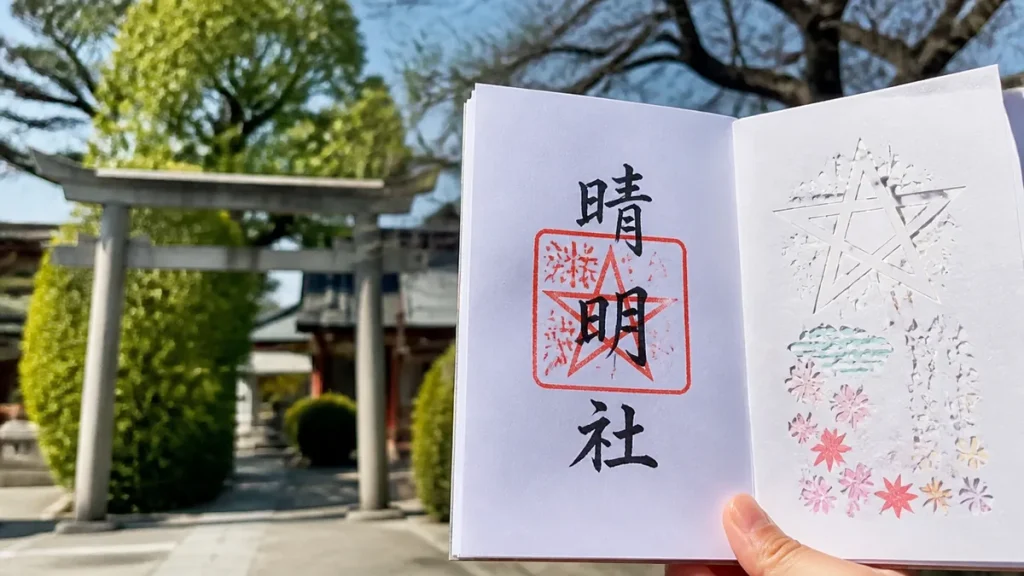 晴
明
社